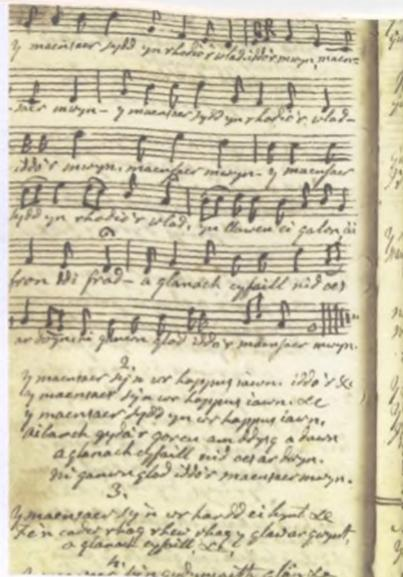 y maensaer sydd yn rhodio'r wlad iddo'r mwyn, maen=
=saer mwyn - y maensaer sydd yn rhodio'r wlad -
iddo'r mwyn, maensaer mwyn - y maensaer
sydd yn rhodio'r wlad, yn llawen ei galon a'i
fron ddi frad - a glanach cyfaill nid oes
ar dwyn ni ganwn glod iddo'r maensaer mwyn.
2.
y maensaer sy'n wr happus iawn. iddo'r &c
y maensaer sy'n wr happus iawn. &c
y maensaer sydd yn wr happus iawn,
gyda'r goreu am ddysg a dawn
a glanach cyfaill nid oes ar dwyn.
ni ganwn glod iddo'r maensaer mwyn.
3.
y maensaer sy'n wr hardd ei hynt. &c
fe'n cadw rhag rhew rhag y glaw a'r gwynt,
a glanach cyfaill, &c,
4.